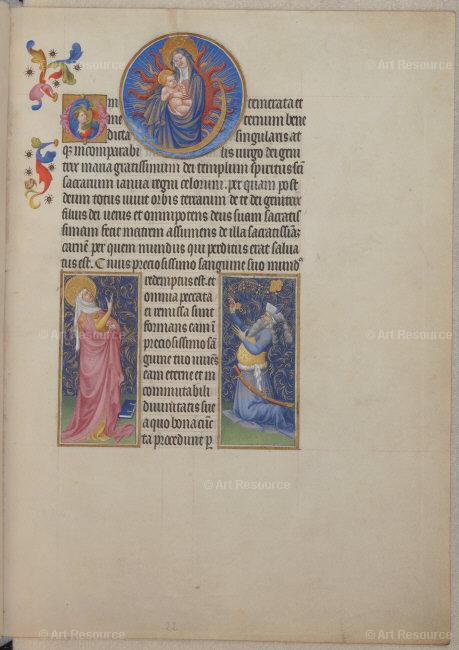 in temerata et
in e ternum bene
dicta singularis at
q₃ incomparabi lis uirgo dei geni
trix maria gratissimum dei templum spiritus sci
sacrarium ianua regni celorum. per quam post
deum totus uiuit orbis terrarum de te dei genitrix
filius dei uerus et omnipotens deus suam sacratis
simam fecit matrem assumens de illa sacratissiā
carnē per quem mundus qui perditus erat salua
tus est. Cuius preciosissimo sanguine suo mundꝰ
redemptus est. et
omnia peccata
ei remissa sunt
formans eam ī
preciosissimo sā
guine tuo
eam eterne et in
commutabili
diuinitatis sue
a quo bona cūc
ta procedunt p̱
22
© Art Resource
© Art Resource
© Art Resource
© Art Resource
© Art Resource
© Art Resource
© Art Resource